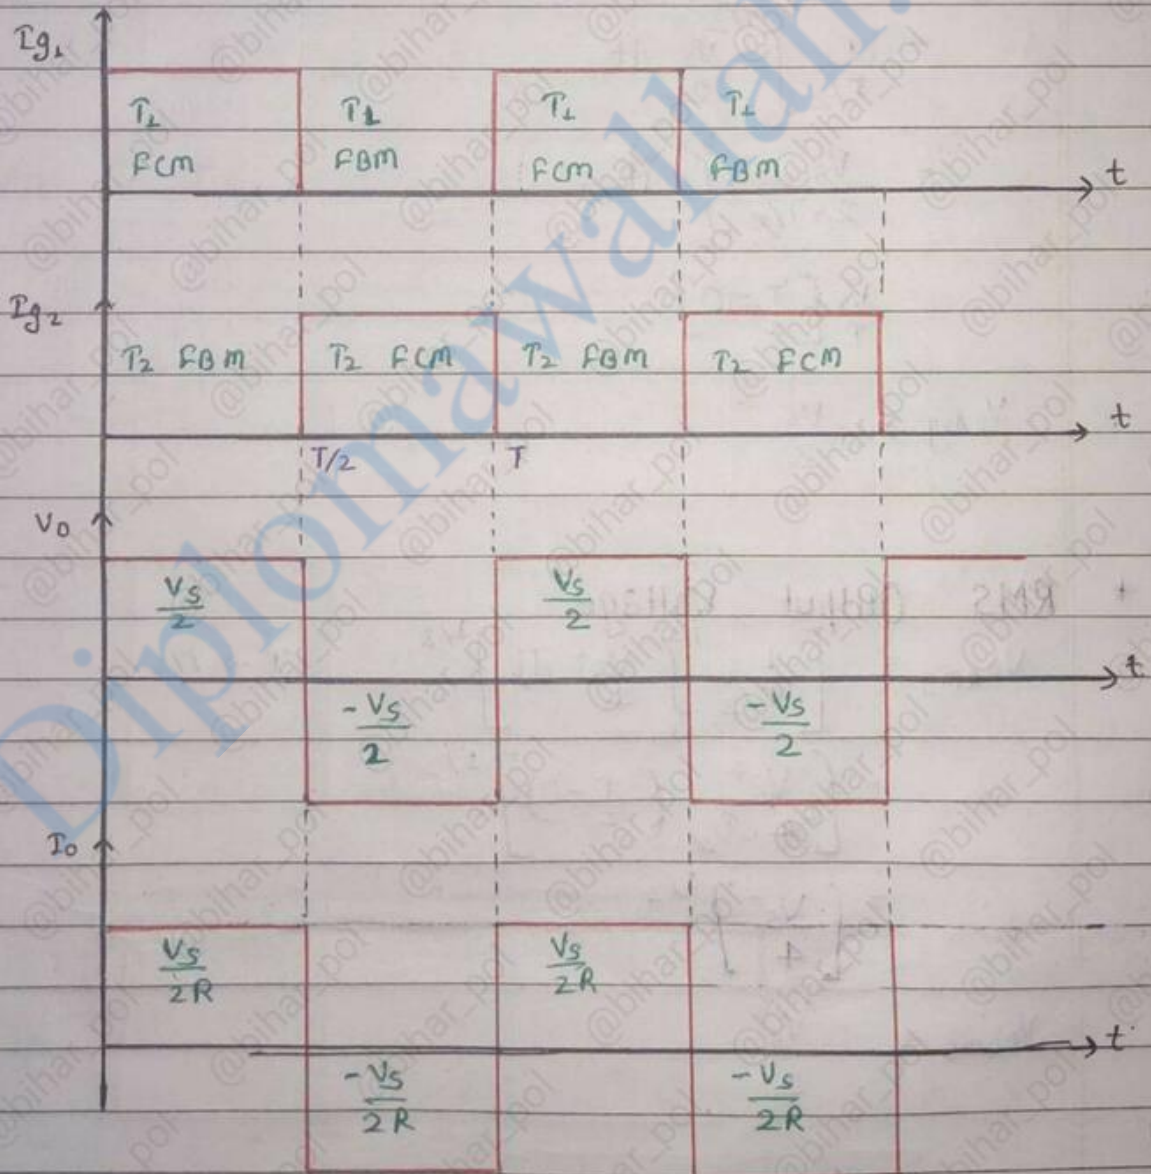 Ig₁
T₁ T₁ T₁ T₁
FCM FBM FCM FBM
t
Ig₂
T₂ FBM T₂ FCM T₂ FBM T₂ FCM
t
T/2 T
V₀
Vs/2 Vs/2
t
-Vs/2 -Vs/2
I₀
Vs/2R Vs/2R
t
-Vs/2R -Vs/2R
Diplomawallah.
@bihar_pol